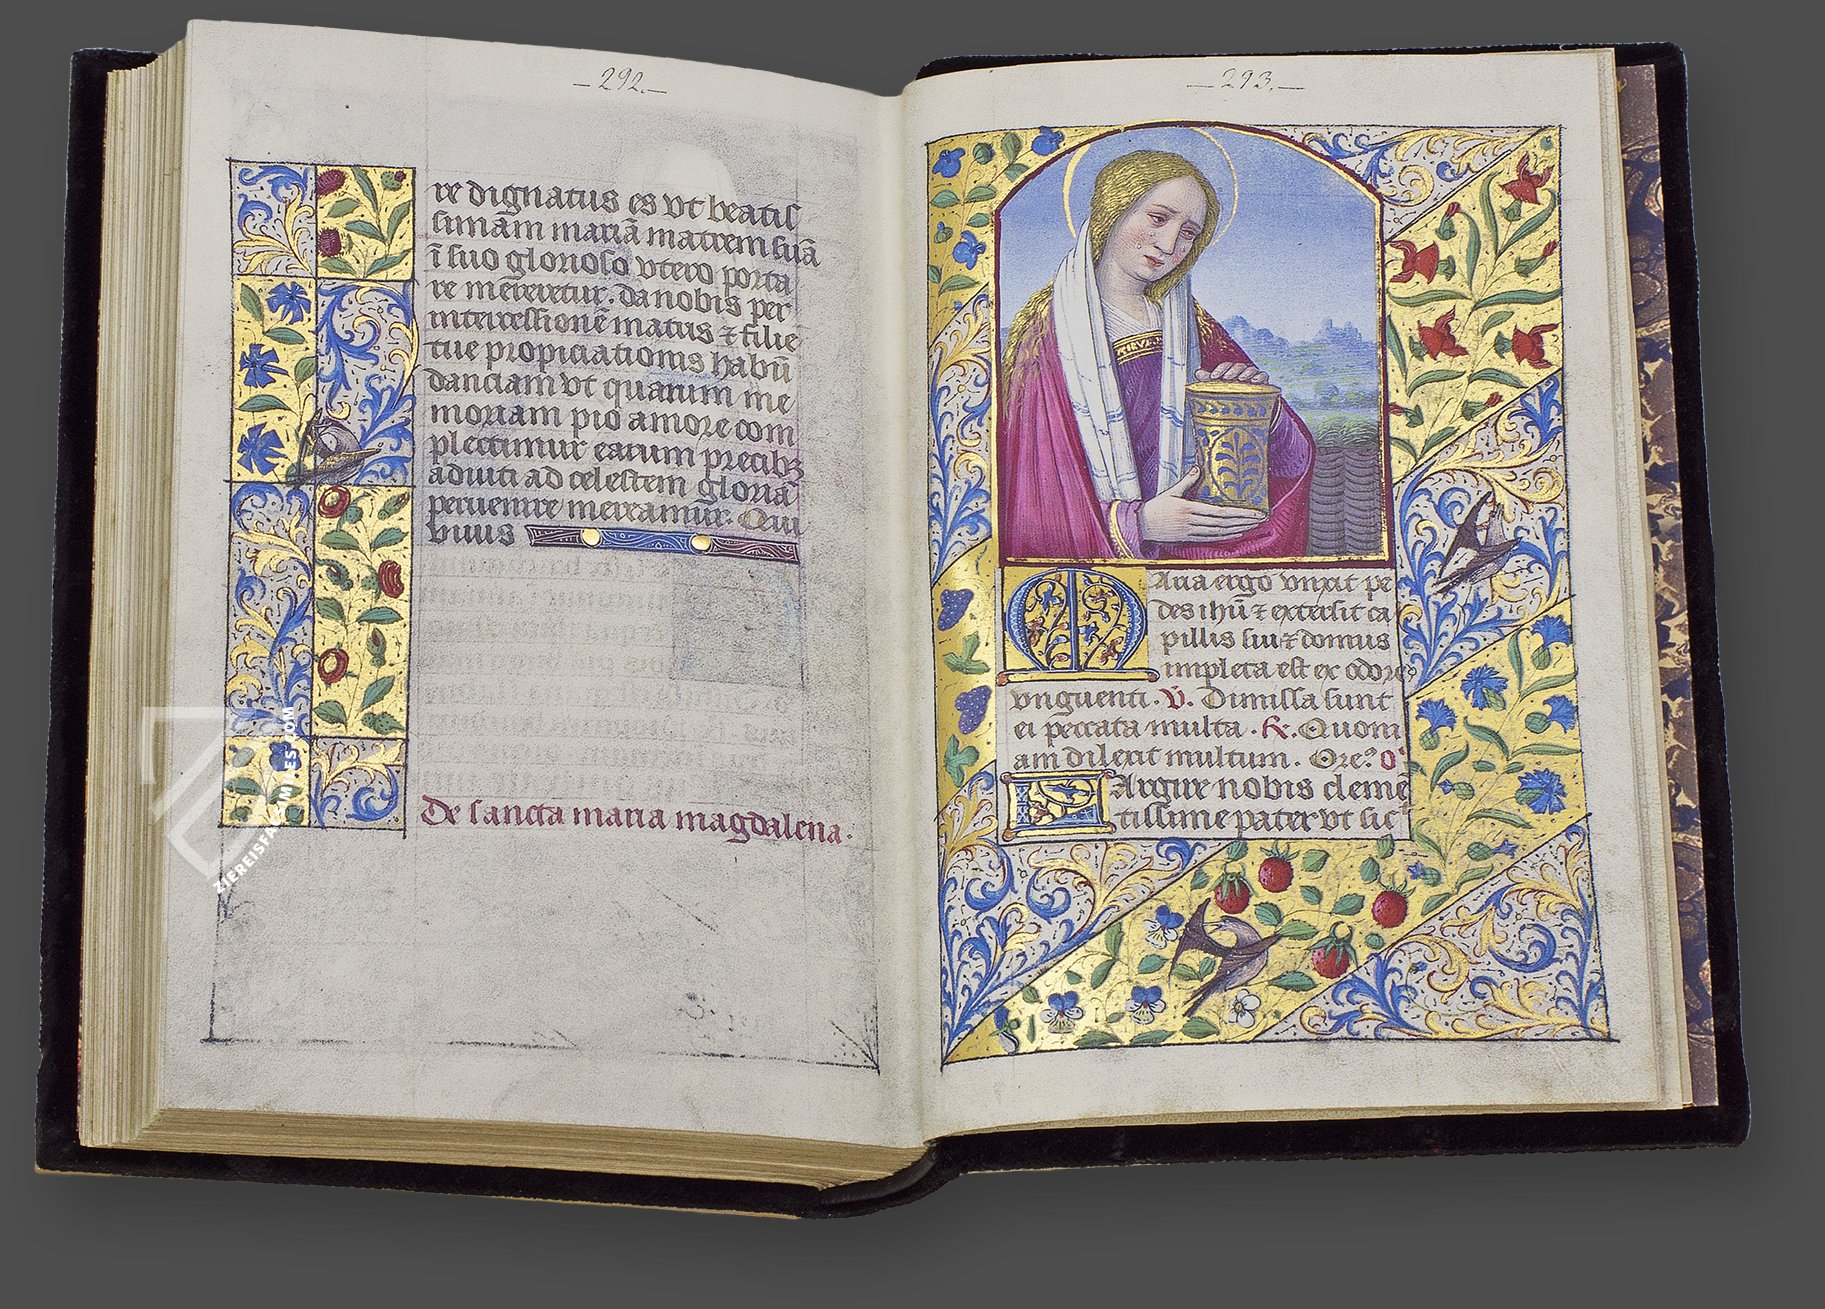 —292.—
re dignatus es vt beatis
simam mariā matrem suā
ī suo glorioso vtero porta
re mereretur. da nobis per
intercessionē matus & filie
tue propiciationis habū
danciam vt quarum me
moriam pio amore com
plectimur earum precibȝ
aduiti ad celestem gloriā
peruenire mereamur. Qui
viuis
De sancta maria magdalena.
—293.—
Maria ergo vnxit pe
des ihū & extersit ca
pillis suis & domus
impleta est ex odore
vnguenti. V̄. Dimissa sunt
ei peccata multa. R. Quoni
am dilexit multum. Ore? o
Largire nobis clemē
tissime pater vt sic
ZIEREISFACSIMILES.COM